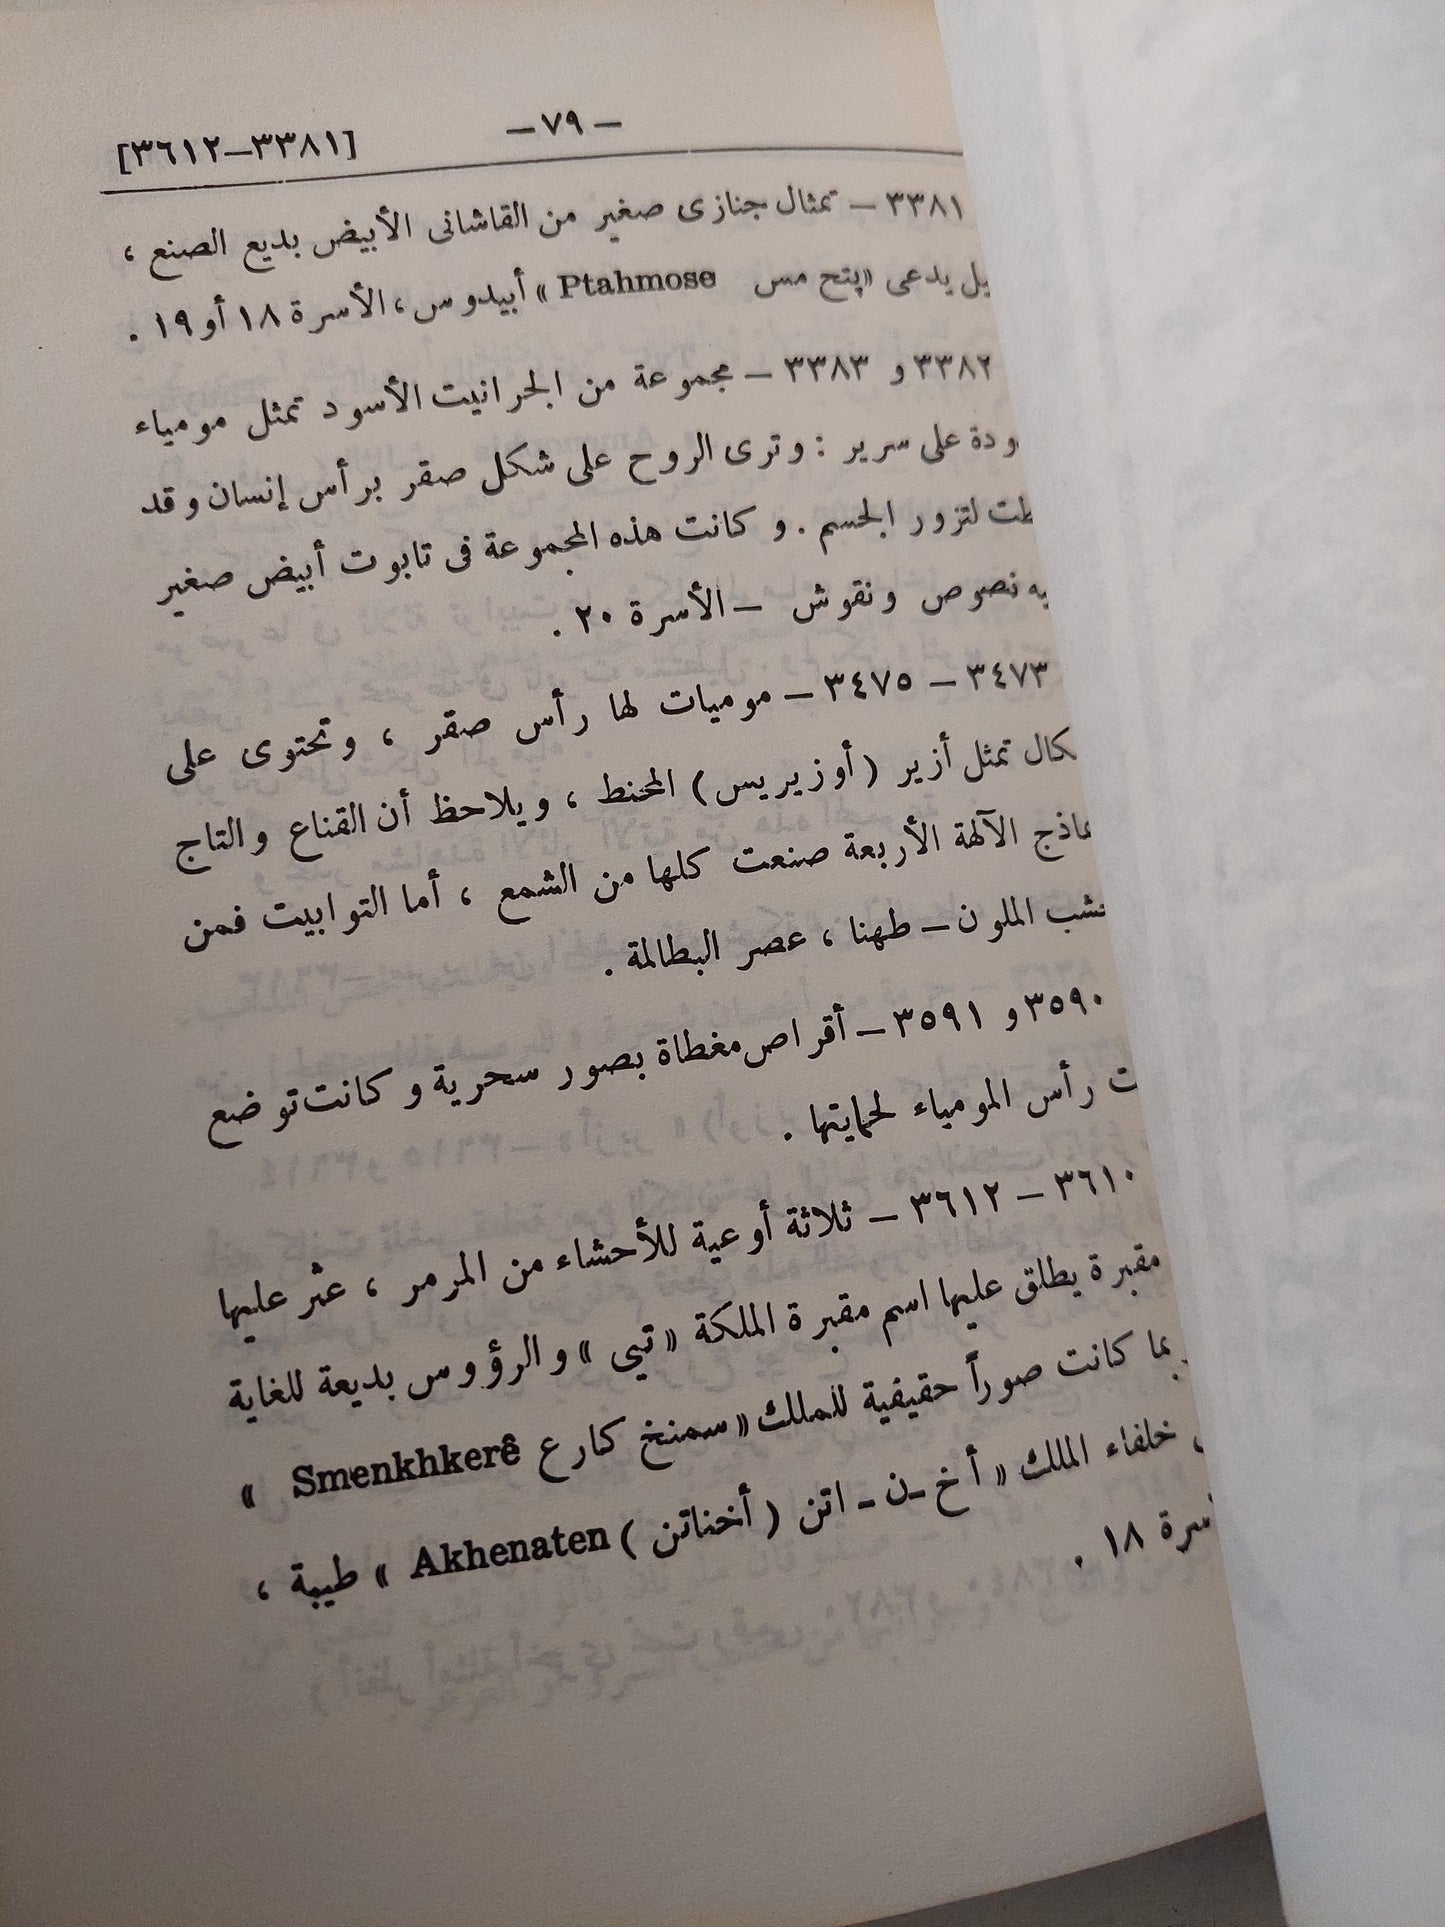 [٣٣٨١–٣٦١٢]
– ٧٩ –
٣٣٨١ – تمثال جنازى صغير من القاشانى الأبيض بديع الصنع ،
يدعى «پتح مس Ptahmose» أبيدوس ، الأسرة ١٨ أو ١٩ .
٣٣٨٢ و ٣٣٨٣ – مجموعة من الجرانيت الأسود تمثل مومياء
على سرير : وترى الروح على شكل صقر برأس إنسان وقد
لتزور الجسم . وكانت هذه المجموعة فى تابوت أبيض صغير
نصوص ونقوش – الأسرة ٢٠ .
٣٤٧٣ – ٣٤٧٥ – موميات لها رأس صقر ، وتحتوى على
تمثل أزير (أوزيريس) المحنط ، ويلاحظ أن القناع والتاج
الآلهة الأربعة صنعت كلها من الشمع ، أما التوابيت فمن
الملون – طهنا ، عصر البطالمة .
٣٥٩٠ و ٣٥٩١ – أقراص مغطاة بصور سحرية وكانت توضع
رأس المومياء لحمايتها .
٣٦١٠ – ٣٦١٢ – ثلاثة أوعية للأحشاء من المرمر ، عثر عليها
مقبرة يطلق عليها اسم مقبرة الملكة «تيي» والرؤوس بديعة للغاية
كانت صوراً حقيقية للملك «سمنخ كارع Smenkhkerê »
خلفاء الملك « أخ - ن - اتن (أخناتن) Akhenaten » طيبة ،
١٨ .